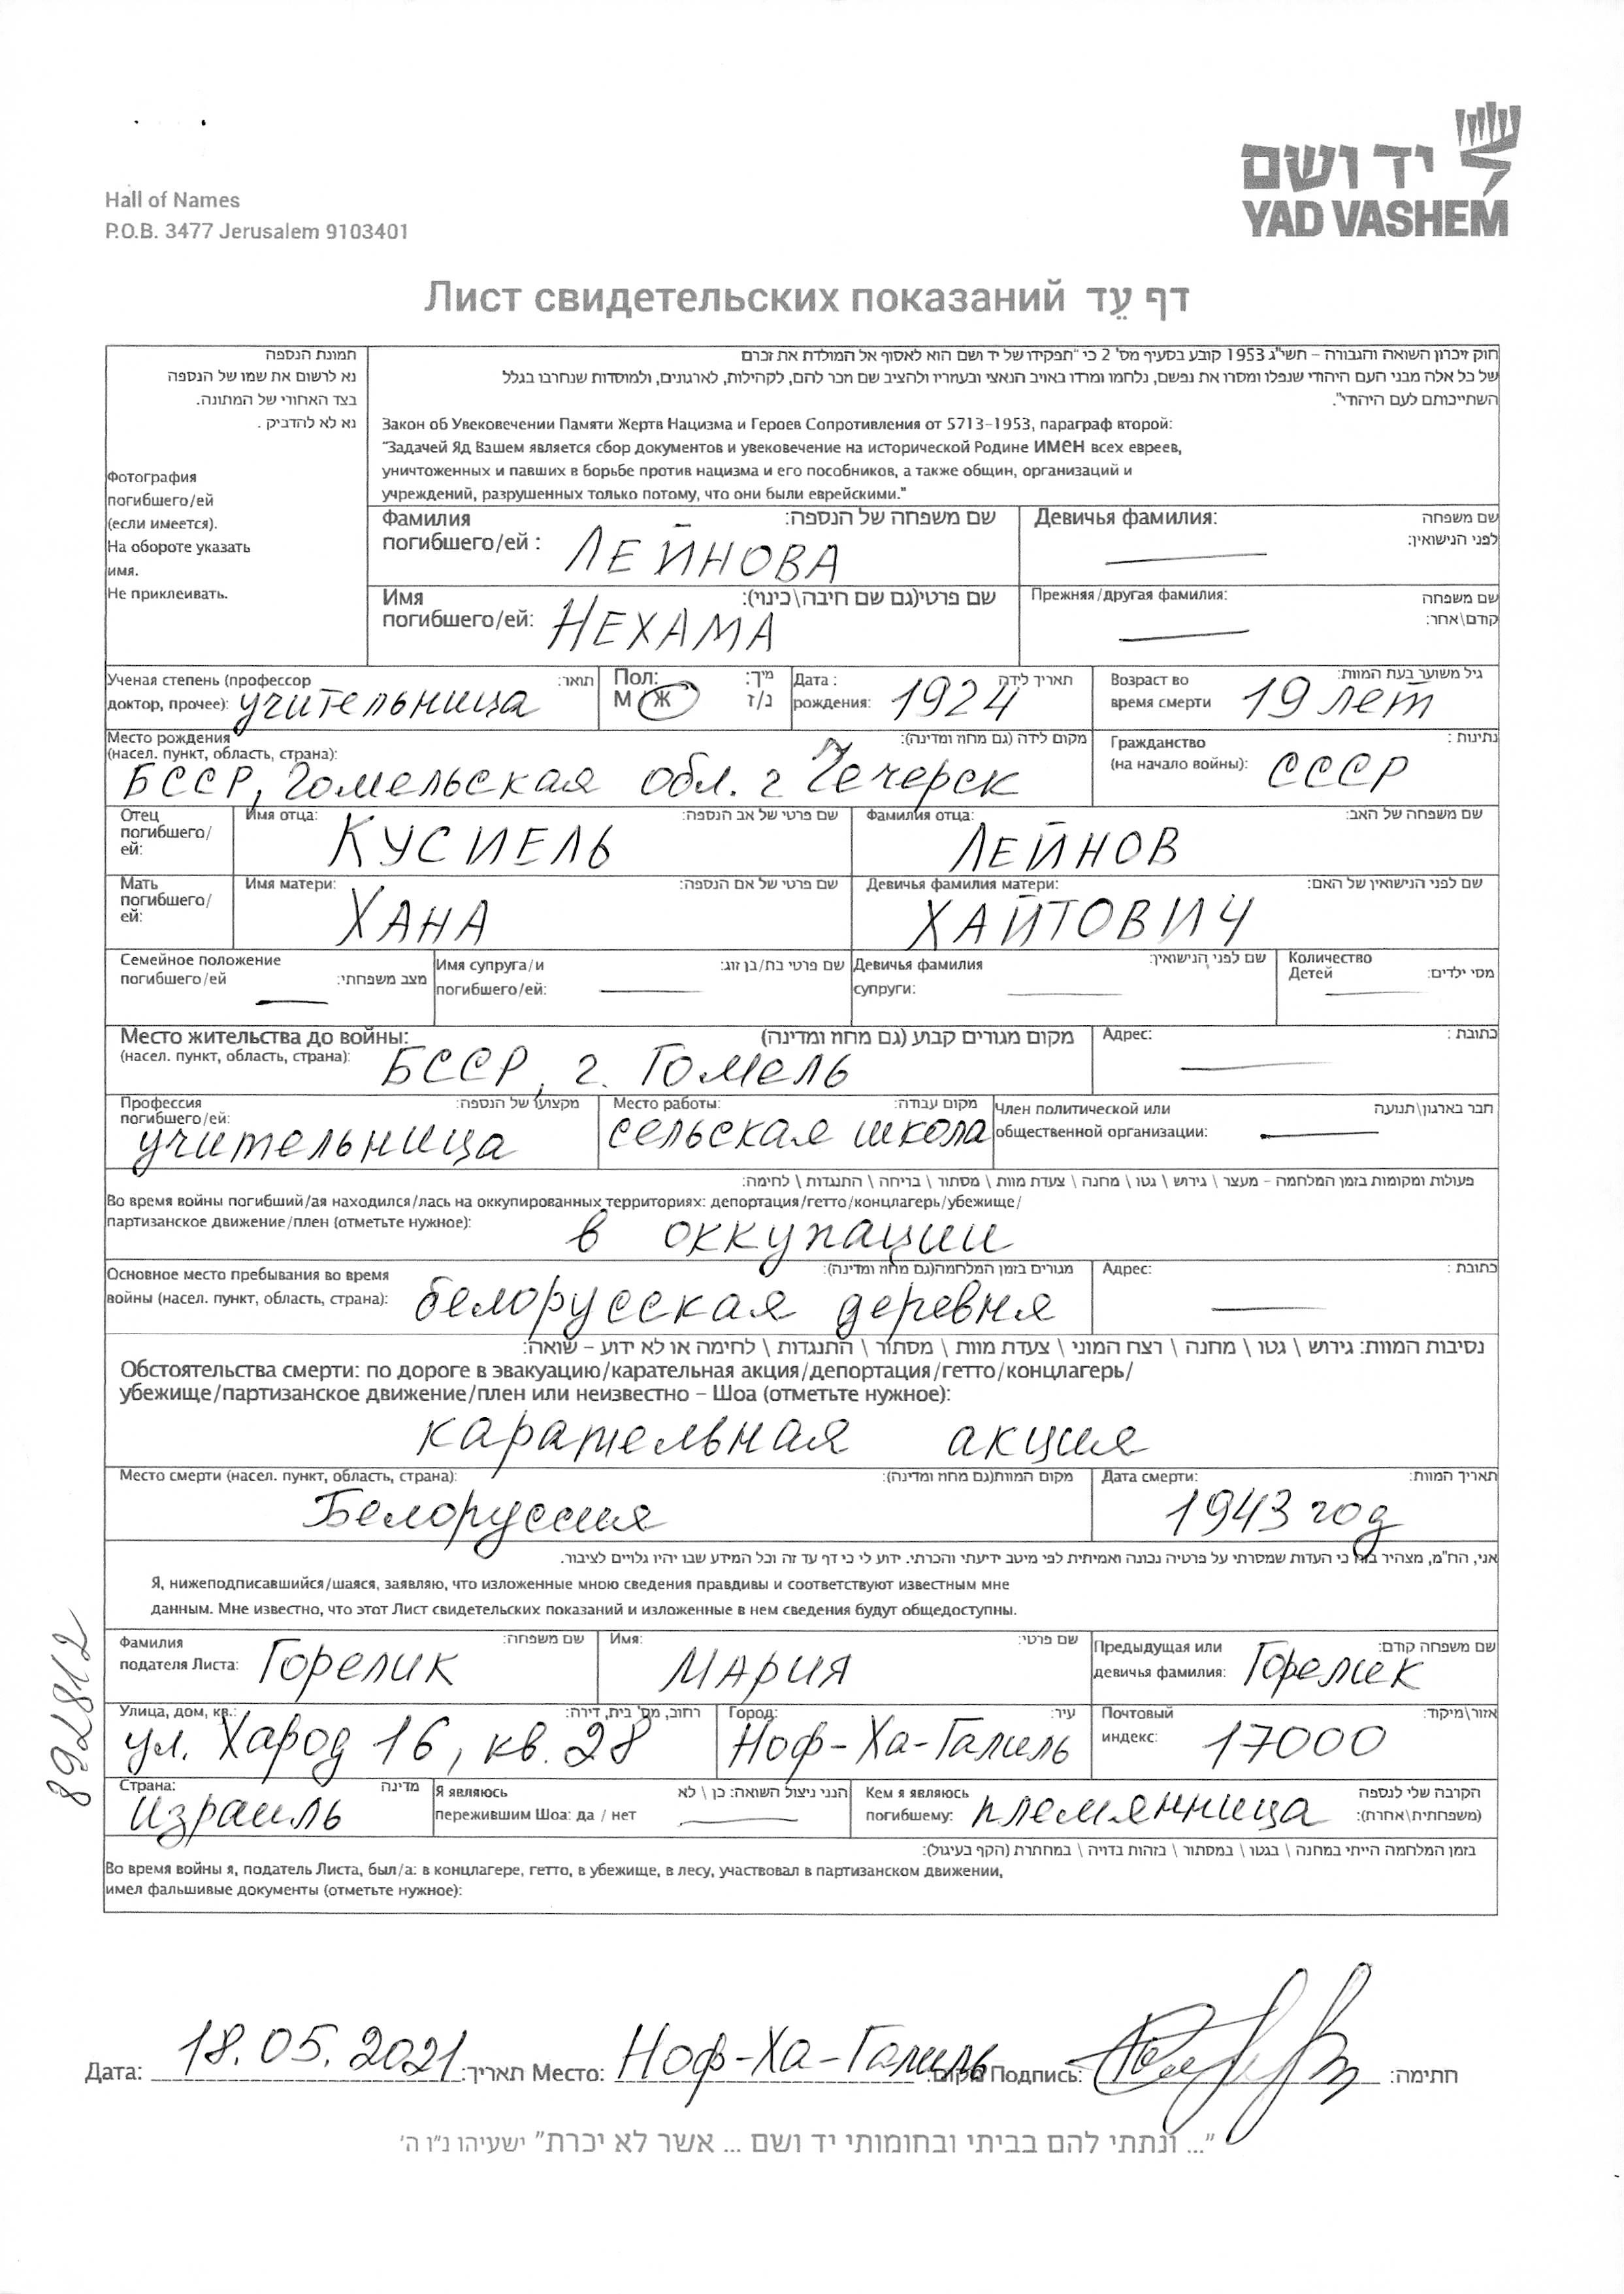 יד ושם
YAD VASHEM
Hall of Names
P.O.B. 3477 Jerusalem 9103401
Лист свидетельских показаний דף עֵד
תמונת הנספה
נא לרשום את שמו של הנספה
בצד האחורי של המתונה.
נא לא להדביק .
Фотография
погибшего/ей
(если имеется).
На обороте указать
имя.
Не приклеивать.
חוק זיכרון השואה והגבורה – תשי"ג 1953 קובע בסעיף מס' 2 כי "תפקידו של יד ושם הוא לאסוף אל המולדת את זכרם
של כל אלה מבני העם היהודי שנפלו ומסרו את נפשם, נלחמו ומרדו באויב הנאצי ובעוזריו ולהציב שם מכר להם, לקהילות, לארגונים, ולמוסדות שנחרבו בגלל
השתייכותם לעם היהודי".
Закон об Увековечении Памяти Жертв Нацизма и Героев Сопротивления от 5713-1953, параграф второй:
"Задачей Яд Вашем является сбор документов и увековечение на исторической Родине имен всех евреев,
уничтоженных и павших в борьбе против нацизма и его пособников, а также общин, организаций и
учреждений, разрушенных только потому, что они были еврейскими."
Фамилия погибшего/ей : ЛЕЙНОВА שם משפחה של הנספה:
Девичья фамилия: — שם משפחה לפני הנישואין:
Имя погибшего/ей: НЕХАМА שם פרטי(גם שם חיבה\כינוי):
Прежняя/другая фамилия: — שם משפחה קודם\אחר:
Ученая степень (профессор доктор, прочее): учительница תואר:
Пол: М Ж מין: נ/ז
Дата : рождения: 1924 תאריך לידה
Возраст во время смерти 19 лет גיל משוער בעת המוות:
Место рождения (насел. пункт, область, страна): מקום לידה (גם מחוז ומדינה):
БССР, Гомельская обл. г Чечерск
Гражданство (на начало войны): СССР נתינות :
Отец погибшего/ей:
Имя отца: КУСИЕЛЬ שם פרטי של אב הנספה:
Фамилия отца: ЛЕЙНОВ שם משפחה של האב:
Мать погибшего/ей:
Имя матери: ХАНА שם פרטי של אם הנספה:
Девичья фамилия матери: ХАЙТОВИЧ שם לפני הנישואין של האם:
Семейное положение погибшего/ей — מצב משפחתי:
Имя супруга/и погибшего/ей: — שם פרטי בת/בן זוג:
Девичья фамилия супруги: — שם לפני הנישואין:
Количество Детей — מסי ילדים:
Место жительства до войны: (насел. пункт, область, страна): БССР, г. Гомель מקום מגורים קבוע (גם מחוז ומדינה)
Адрес: — כתובת :
Профессия погибшего/ей: учительница מקצועו של הנספה:
Место работы: сельская школа מקום עבודה:
Член политической или общественной организации: — חבר בארגון\תנועה
פעולות ומקומות בזמן המלחמה – מעצר \ גירוש \ גטו \ מחנה \ צעדת מוות \ מסתור \ בריחה \ התנגדות \ לחימה:
Во время войны погибший/ая находился/лась на оккупированных территориях: депортация/гетто/концлагерь/убежище/
партизанское движение/плен (отметьте нужное):
в оккупации
Основное место пребывания во время войны (насел. пункт, область, страна): белорусская деревня מגורים בזמן המלחמה(גם מחוז ומדינה):
Адрес: — כתובת :
נסיבות המוות: גירוש \ גטו \ מחנה \ רצח המוני \ צעדת מוות \ מסתור \ התנגדות \ לחימה או לא ידוע – שואה:
Обстоятельства смерти: по дороге в эвакуацию/карательная акция/депортация/гетто/концлагерь/
убежище/партизанское движение/плен или неизвестно – Шоа (отметьте нужное):
карательная акция
Место смерти (насел. пункт, область, страна): Белоруссия מקום המוות(גם מחוז ומדינה):
Дата смерти: 1943 год תאריך המוות:
אני, הח"מ, מצהיר בזה כי העדות שמסרתי על פרטיה נכונה ואמיתית לפי מיטב ידיעתי והכרתי. ידוע לי כי דף עד זה וכל המידע שבו יהיו גלויים לציבור.
Я, нижеподписавшийся/шаяся, заявляю, что изложенные мною сведения правдивы и соответствуют известным мне
данным. Мне известно, что этот Лист свидетельских показаний и изложенные в нем сведения будут общедоступны.
Фамилия подателя Листа: Горелик שם משפחה:
Имя: МАРИЯ שם פרטי:
Предыдущая или девичья фамилия: Горелик שם משפחה קודם:
Улица, дом, кв.: ул. Харод 16, кв. 28 רחוב, מס' בית, דירה:
Город: Ноф-Ха-Галиль עיר:
Почтовый индекс: 17000 אזור\מיקוד:
Страна: Израиль מדינה
Я являюсь пережившим Шоа: да / нет — הנני ניצול השואה: כן \ לא
Кем я являюсь погибшему: племянница הקרבה שלי לנספה (משפחתית\אחרת):
בזמן המלחמה הייתי במחנה \ בגטו \ במסתור \ בזהות בדויה \ במחתרת (הקף בעיגול):
Во время войны я, податель Листа, был/а: в концлагере, гетто, в убежище, в лесу, участвовал в партизанском движении,
имел фальшивые документы (отметьте нужное):
892812
Дата: 18.05.2021 תאריך: Место: Ноф-Ха-Галиль מקום: Подпись: חתימה:
"... ונתתי להם בביתי ובחומותי יד ושם ... אשר לא יכרת" ישעיהו נ"ו ה'